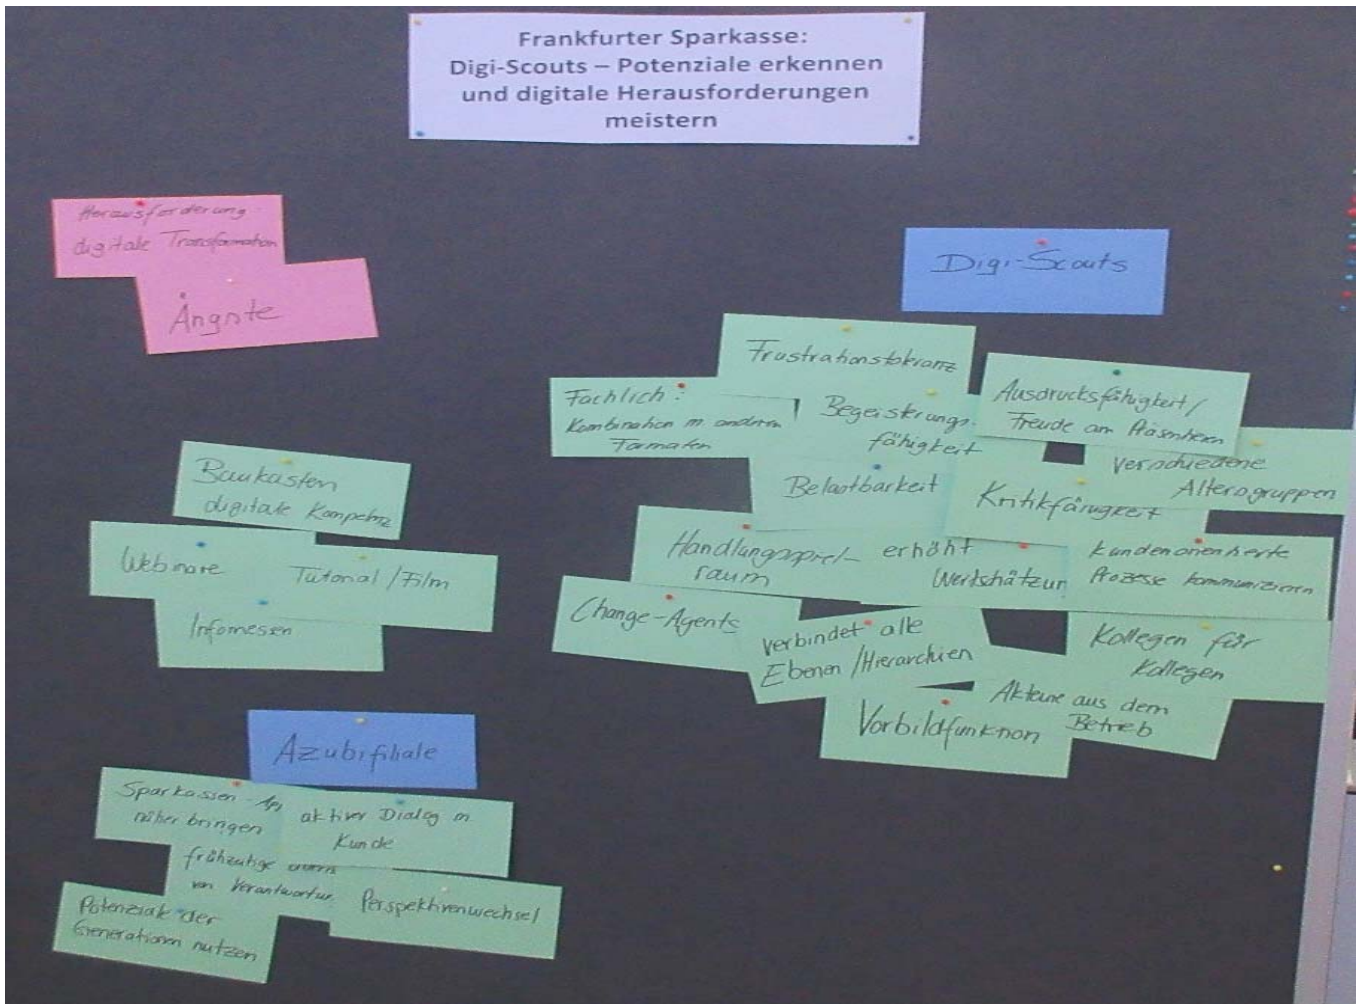 Frankfurter Sparkasse:
Digi-Scouts – Potenziale erkennen
und digitale Herausforderungen
meistern
Herausforderung
digitale Transformation
Ängste
Baukasten
digitale Kompetenz
Webinare
Tutorial/Film
Infomessen
Azubifiliale
Sparkassen-App
näher bringen
aktiver Dialog m
Kunde
frühzeitige
von Verantwortun
Perspektivenwechsel
Potenziale der
Generationen nutzen
Digi-Scouts
Frustrationstoleranz
Fachlich:
Kombination m anderen
Formaten
Begeisterungs-
fähigkeit
Ausdrucksfähigkeit/
Freude am Präsentieren
Verschiedene
Altersgruppen
Belastbarkeit
Kritikfähigkeit
Handlungsspiel-
raum
erhöht
Wertschätzun
Kundenorientierte
Prozesse kommunizieren
Change-Agents
verbindet alle
Ebenen/Hierarchien
Kollegen für
Kollegen
Akteure aus dem
Betrieb
Vorbildfunktion